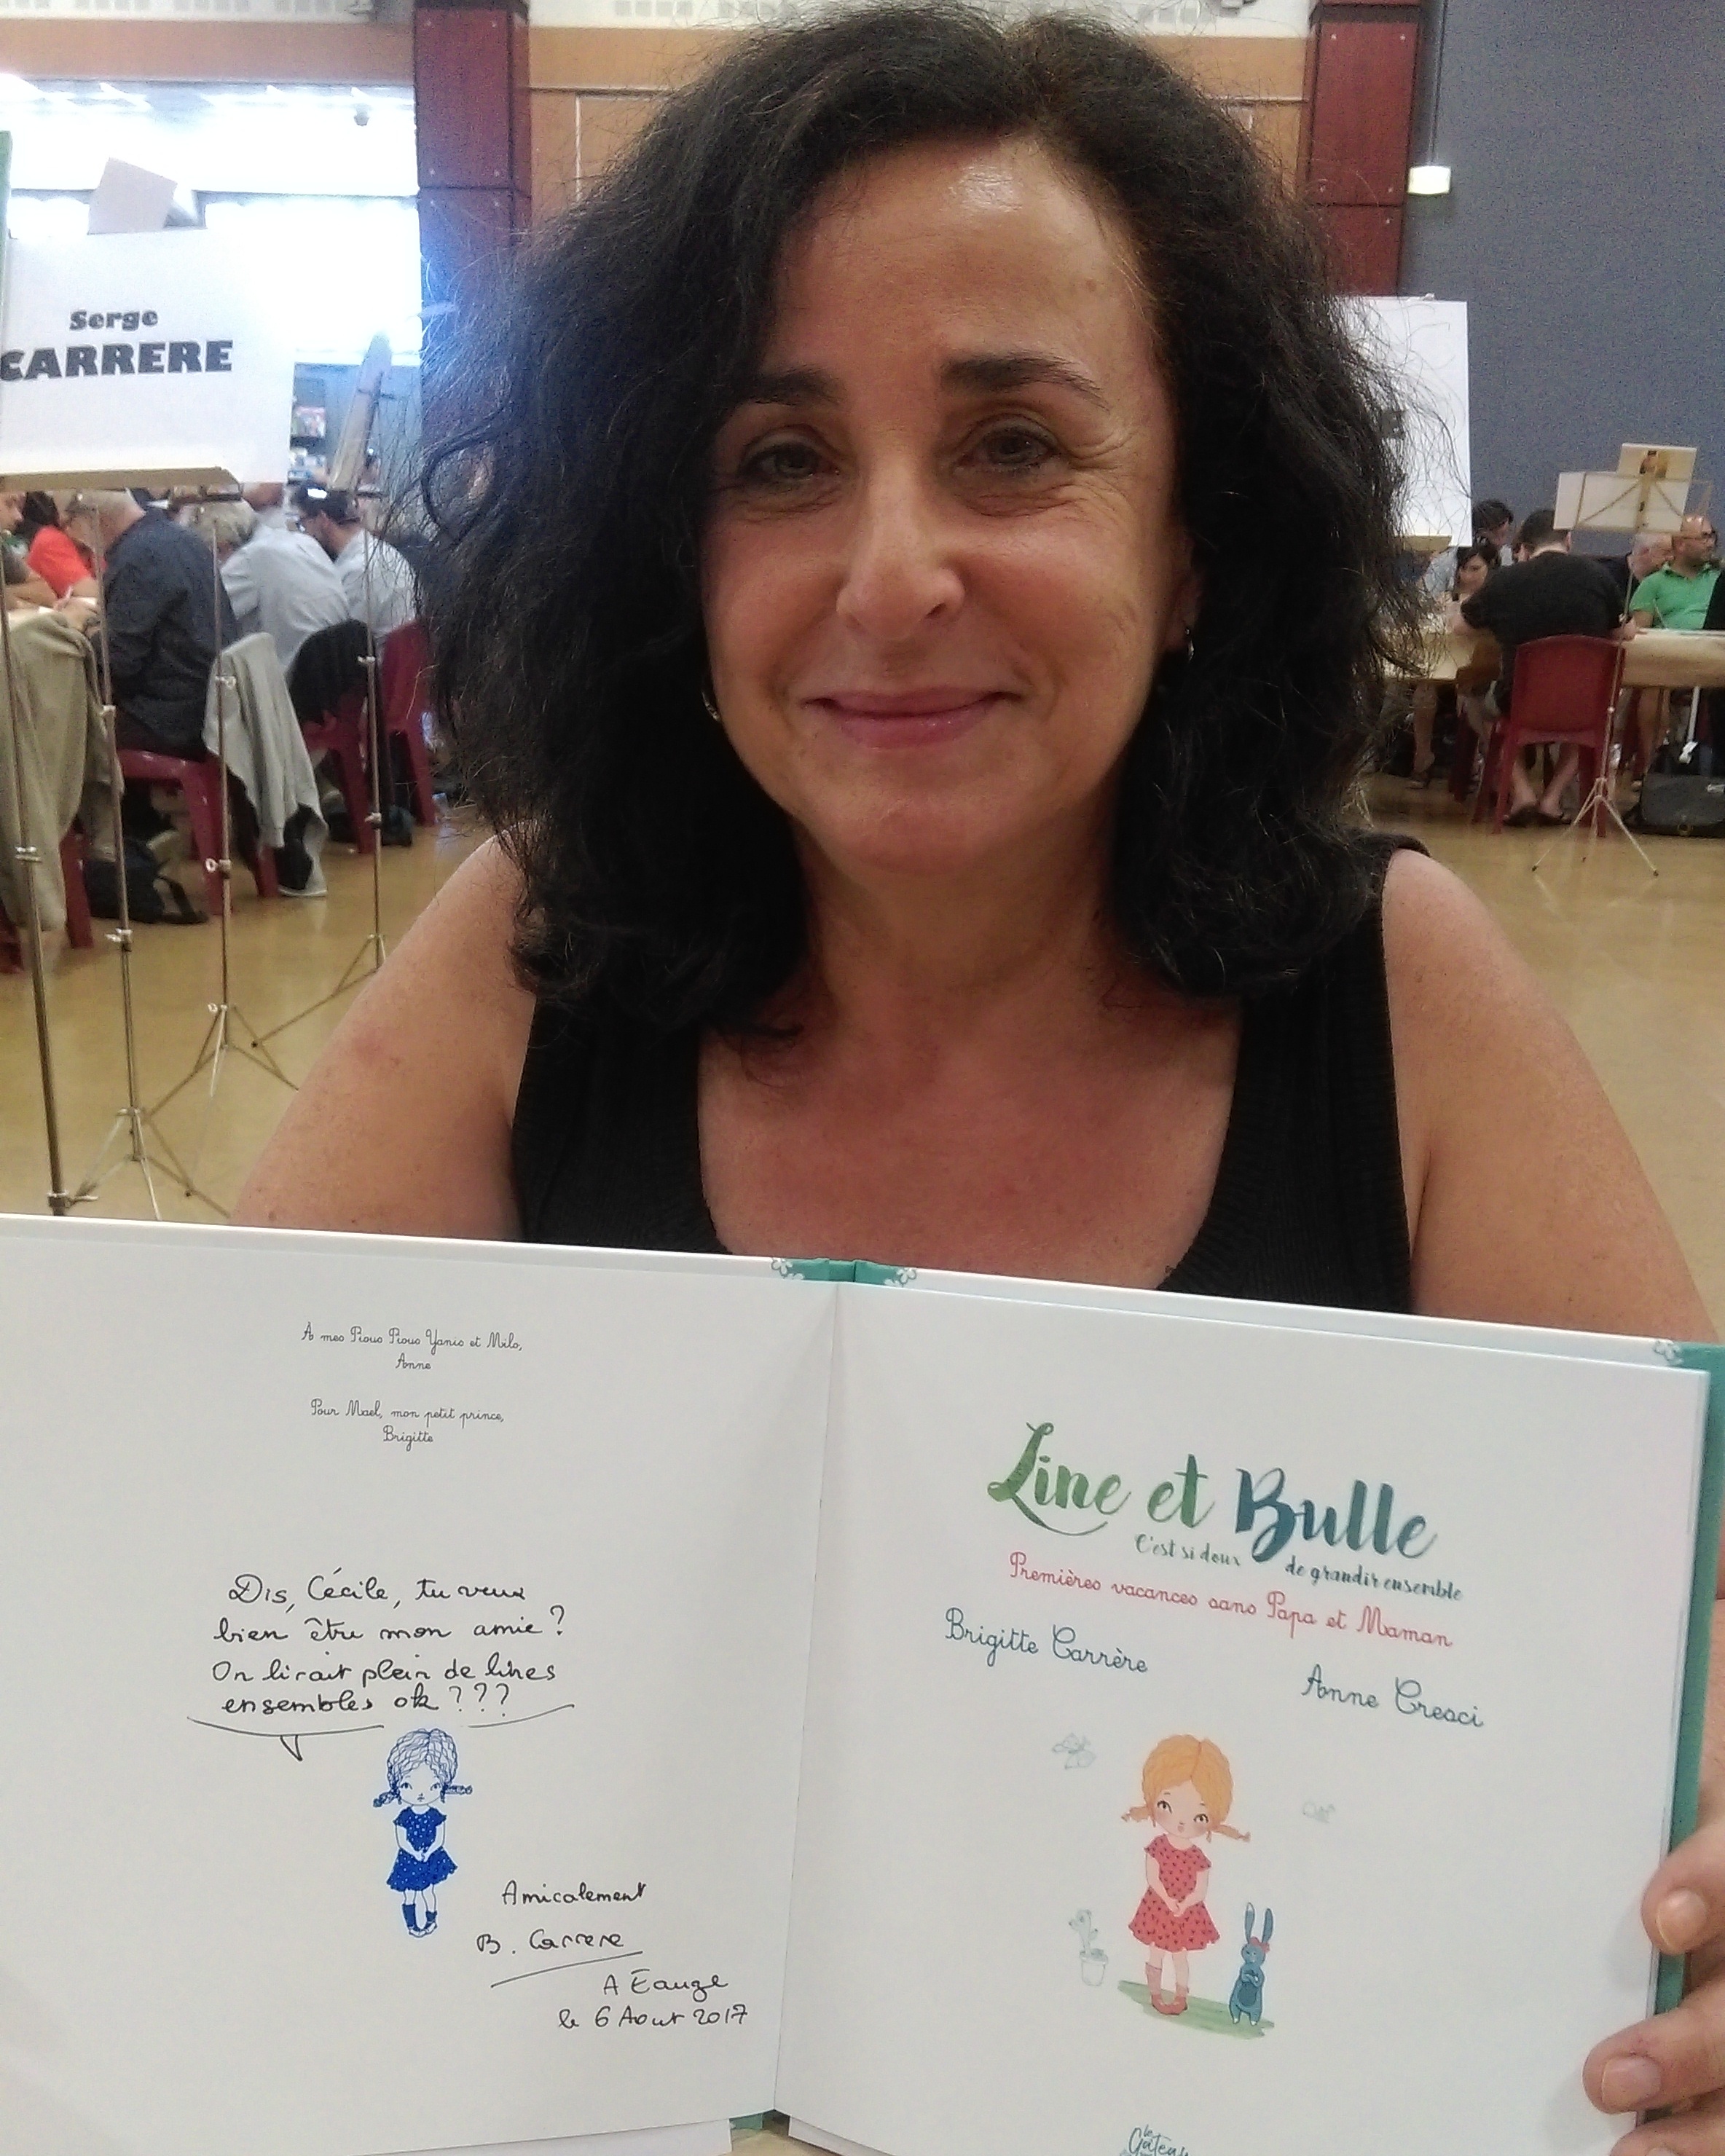 Serge
CARRERE
À mes Pious Pious Yanis et Milo,
Anne
Pour Mael, mon petit prince,
Brigitte
Dis, Cécile, tu veux
bien être mon amie ?
On lirait plein de livres
ensembles ok ???
Amicalement
B. Carrere
A Eauze
le 6 Aout 2017
Line et Bulle
C'est si doux de grandir ensemble
Premières vacances sans Papa et Maman
Brigitte Carrère
Anne Cresci
le
Gâteau